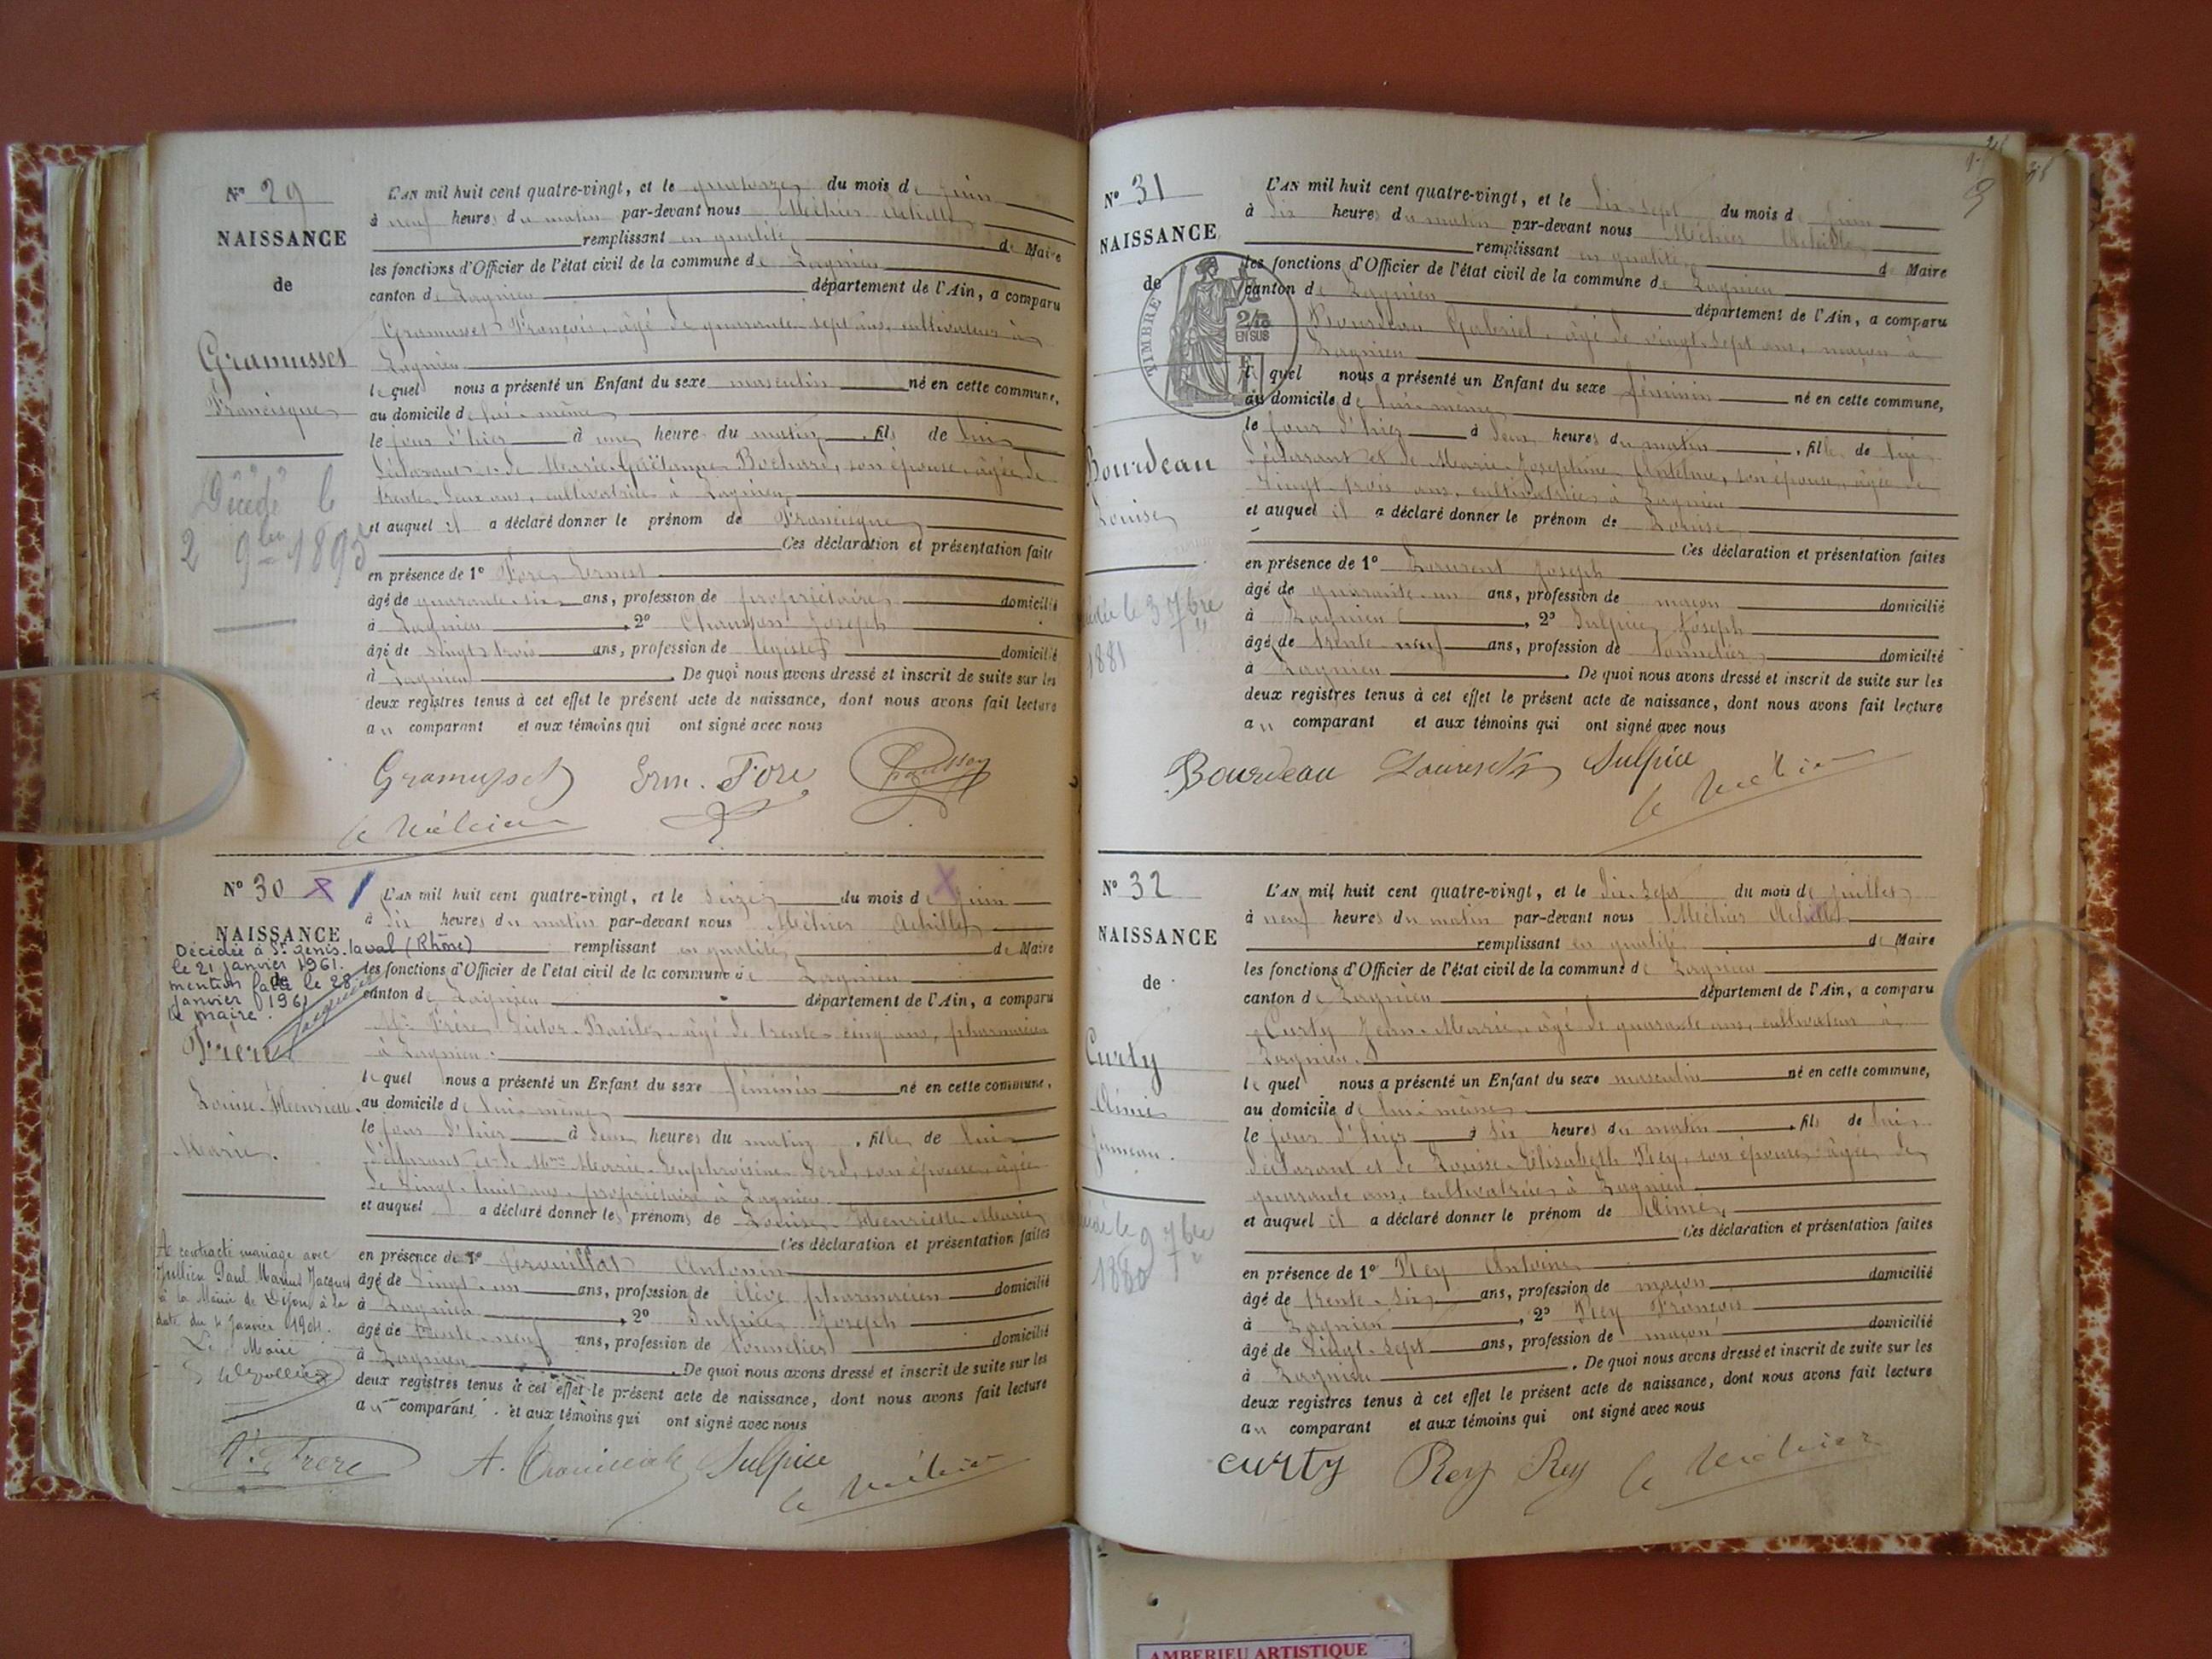 N° 29
NAISSANCE
de
Gramusset
Francisque
Décédé le
2 9bre 1895
L'AN mil huit cent quatre-vingt, et le quatorze du mois de juin
à neuf heures du matin par-devant nous Méhier Achille
remplissant en qualité de Maire
les fonctions d'Officier de l'état civil de la commune de Lagnieu
canton de Lagnieu département de l'Ain, a comparu
Gramusset François, âgé de quarante-sept ans, cultivateur à
Lagnieu
lequel nous a présenté un Enfant du sexe masculin né en cette commune,
au domicile de lui-même
le jour d'hier à une heure du matin, fils de lui
déclarant et de Marie Bochard, son épouse, âgée de
trente-deux ans, cultivatrice à Lagnieu
et auquel il a déclaré donner le prénom de Francisque
Ces déclaration et présentation faites
en présence de 1° Fore Ernest
âgé de quarante-six ans, profession de propriétaire domicilié
à Lagnieu, 2° Chausson Joseph
âgé de vingt-trois ans, profession de domicilié
à Lagnieu. De quoi nous avons dressé et inscrit de suite sur les
deux registres tenus à cet effet le présent acte de naissance, dont nous avons fait lecture
au comparant et aux témoins qui ont signé avec nous
Gramusset Ern. Fore Chausson
Méhier
N° 30
NAISSANCE
de
Décédée à St Genis-Laval (Rhône)
le 21 janvier 1961.
mention faite le 28
janvier 1961
Le maire.
Frère
Louise-Henriette
Marie.
A contracté mariage avec
Jullien Paul Marius Jacques
à la Mairie de Dijon à la
date du 4 janvier 1904.
Le Maire
L'AN mil huit cent quatre-vingt, et le seize du mois de juin
à dix heures du matin par-devant nous Méhier Achille
remplissant en qualité de Maire
les fonctions d'Officier de l'état civil de la commune de Lagnieu
canton de Lagnieu département de l'Ain, a comparu
Mr Frère Victor-Basile, âgé de trente-cinq ans, pharmacien
à Lagnieu.
lequel nous a présenté un Enfant du sexe féminin né en cette commune,
au domicile de lui-même
le jour d'hier à deux heures du matin, fille de lui
déclarant et de Mme Marie-Euphroisine, son épouse, âgée
de vingt-huit ans, propriétaire à Lagnieu
et auquel a déclaré donner les prénoms de Louise-Henriette-Marie
Ces déclaration et présentation faites
en présence de 1° Trouillat Antonin
âgé de vingt-un ans, profession de élève pharmacien domicilié
à Lagnieu, 2° Sulpice Joseph
âgé de trente-neuf ans, profession de tonnelier domicilié
à Lagnieu. De quoi nous avons dressé et inscrit de suite sur les
deux registres tenus à cet effet le présent acte de naissance, dont nous avons fait lecture
au comparant et aux témoins qui ont signé avec nous
V. Frère A. Trouillat Sulpice
Méhier
N° 31
NAISSANCE
de
TIMBRE
2/10
EN SUS
Bourdeau
Louise
le 3 7bre
1881
L'AN mil huit cent quatre-vingt, et le dix-sept du mois de juin
à dix heures du matin par-devant nous Méhier Achille
remplissant en qualité de Maire
les fonctions d'Officier de l'état civil de la commune de Lagnieu
canton de Lagnieu département de l'Ain, a comparu
Bourdeau Gabriel, âgé de vingt-sept ans, maçon à
Lagnieu
lequel nous a présenté un Enfant du sexe féminin né en cette commune,
au domicile de lui-même
le jour d'hier à deux heures du matin, fille de lui
déclarant et de Marie-Joséphine Antelme, son épouse, âgée de
vingt-trois ans, cultivatrice à Lagnieu
et auquel il a déclaré donner le prénom de Louise
Ces déclaration et présentation faites
en présence de 1° Laurent Joseph
âgé de quarante-un ans, profession de maçon domicilié
à Lagnieu, 2° Sulpice Joseph
âgé de trente-neuf ans, profession de tonnelier domicilié
à Lagnieu. De quoi nous avons dressé et inscrit de suite sur les
deux registres tenus à cet effet le présent acte de naissance, dont nous avons fait lecture
au comparant et aux témoins qui ont signé avec nous
Bourdeau Laurent Sulpice
Méhier
N° 32
NAISSANCE
de
Curty
Aimé
Jumeau.
le 9 7bre
1880
L'AN mil huit cent quatre-vingt, et le dix-sept du mois de juillet
à neuf heures du matin par-devant nous Méhier Achille
remplissant en qualité de Maire
les fonctions d'Officier de l'état civil de la commune de Lagnieu
canton de Lagnieu département de l'Ain, a comparu
Curty Jean-Marie, âgé de quarante ans, cultivateur à
Lagnieu.
lequel nous a présenté un Enfant du sexe masculin né en cette commune,
au domicile de lui-même
le jour d'hier à six heures du matin, fils de lui
déclarant et de Louise-Elisabeth Rey, son épouse, âgée de
quarante ans, cultivatrice à Lagnieu
et auquel il a déclaré donner le prénom de Aimé,
Ces déclaration et présentation faites
en présence de 1° Rey Antoine
âgé de trente-six ans, profession de maçon domicilié
à Lagnieu, 2° Rey François
âgé de vingt-sept ans, profession de maçon domicilié
à Lagnieu. De quoi nous avons dressé et inscrit de suite sur les
deux registres tenus à cet effet le présent acte de naissance, dont nous avons fait lecture
au comparant et aux témoins qui ont signé avec nous
Curty Rey Rey Méhier
AMBERIEU ARTISTIQUE